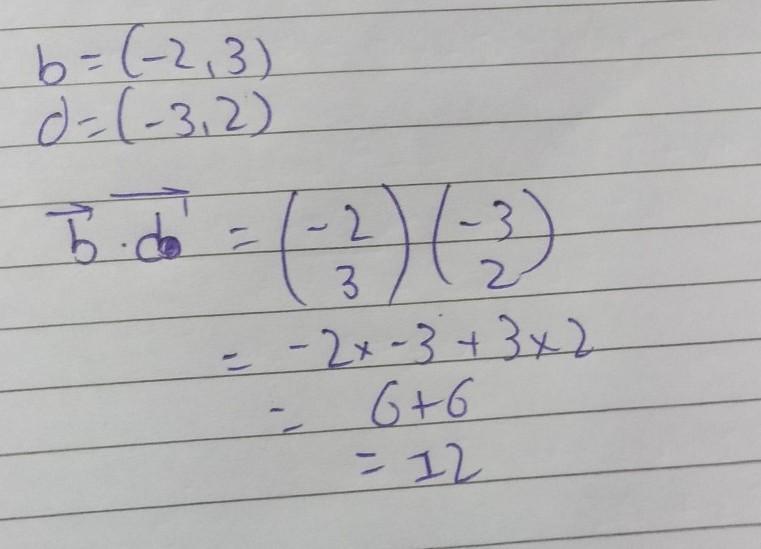 b = (-2, 3)
d = (-3, 2)
b⃗ · d⃗ = (-2 3) (-3 2)
= -2 × -3 + 3 × 2
= 6 + 6
= 12